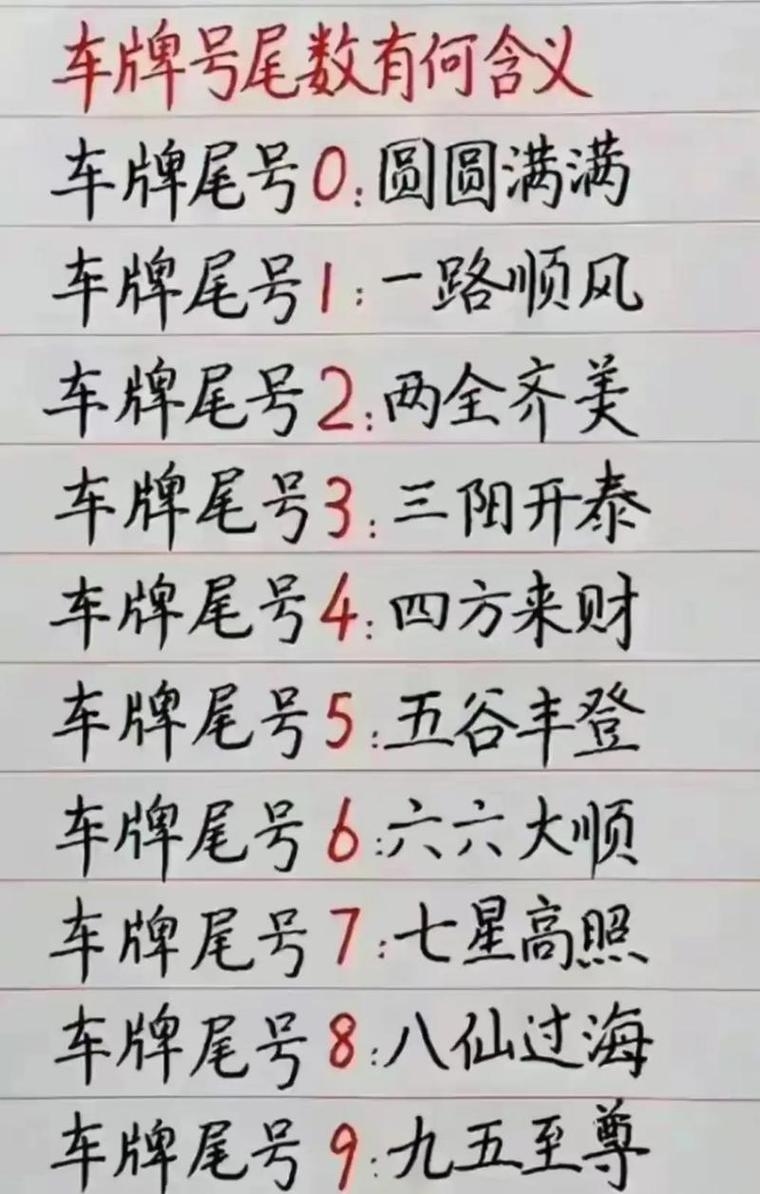 车牌号尾数有何含义
车牌尾号0:圆圆满满
车牌尾号1:一路顺风
车牌尾号2:两全齐美
车牌尾号3:三阳开泰
车牌尾号4:四方来财
车牌尾号5:五谷丰登
车牌尾号6:六六大顺
车牌尾号7:七星高照
车牌尾号8:八仙过海
车牌尾号9:九五至尊